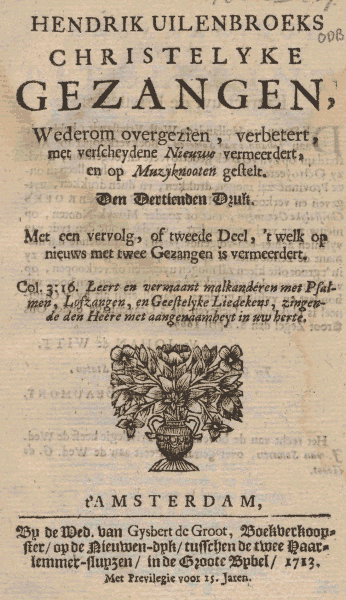 HENDRIK UILENBROEKS
ODB
CHRISTELYKE
GEZANGEN,
Wederom overgezien, verbetert,
met verscheydene Nieuwe vermeerdert,
en op Muzyknooten gestelt.
Den Dertienden Druk.
Met een vervolg, of tweede Deel, 't welk op
nieuws met twee Gezangen is vermeerdert.
Col. 3: 16. Leert en vermaant malkanderen met Psal-
men, Lofzangen, en Geestelyke Liedekens, zingen-
de den Heere met aangenaamheyt in uw herte.
t'AMSTERDAM,
By de Wed. van Gysbert de Groot, Boekverkoop-
ster/ op de Nieuwen-dyk/ tusschen de twee Haar-
lemmer-sluyzen/ in de Groote Bybel/ 1713.
Met Previlegie voor 15. Jaren.